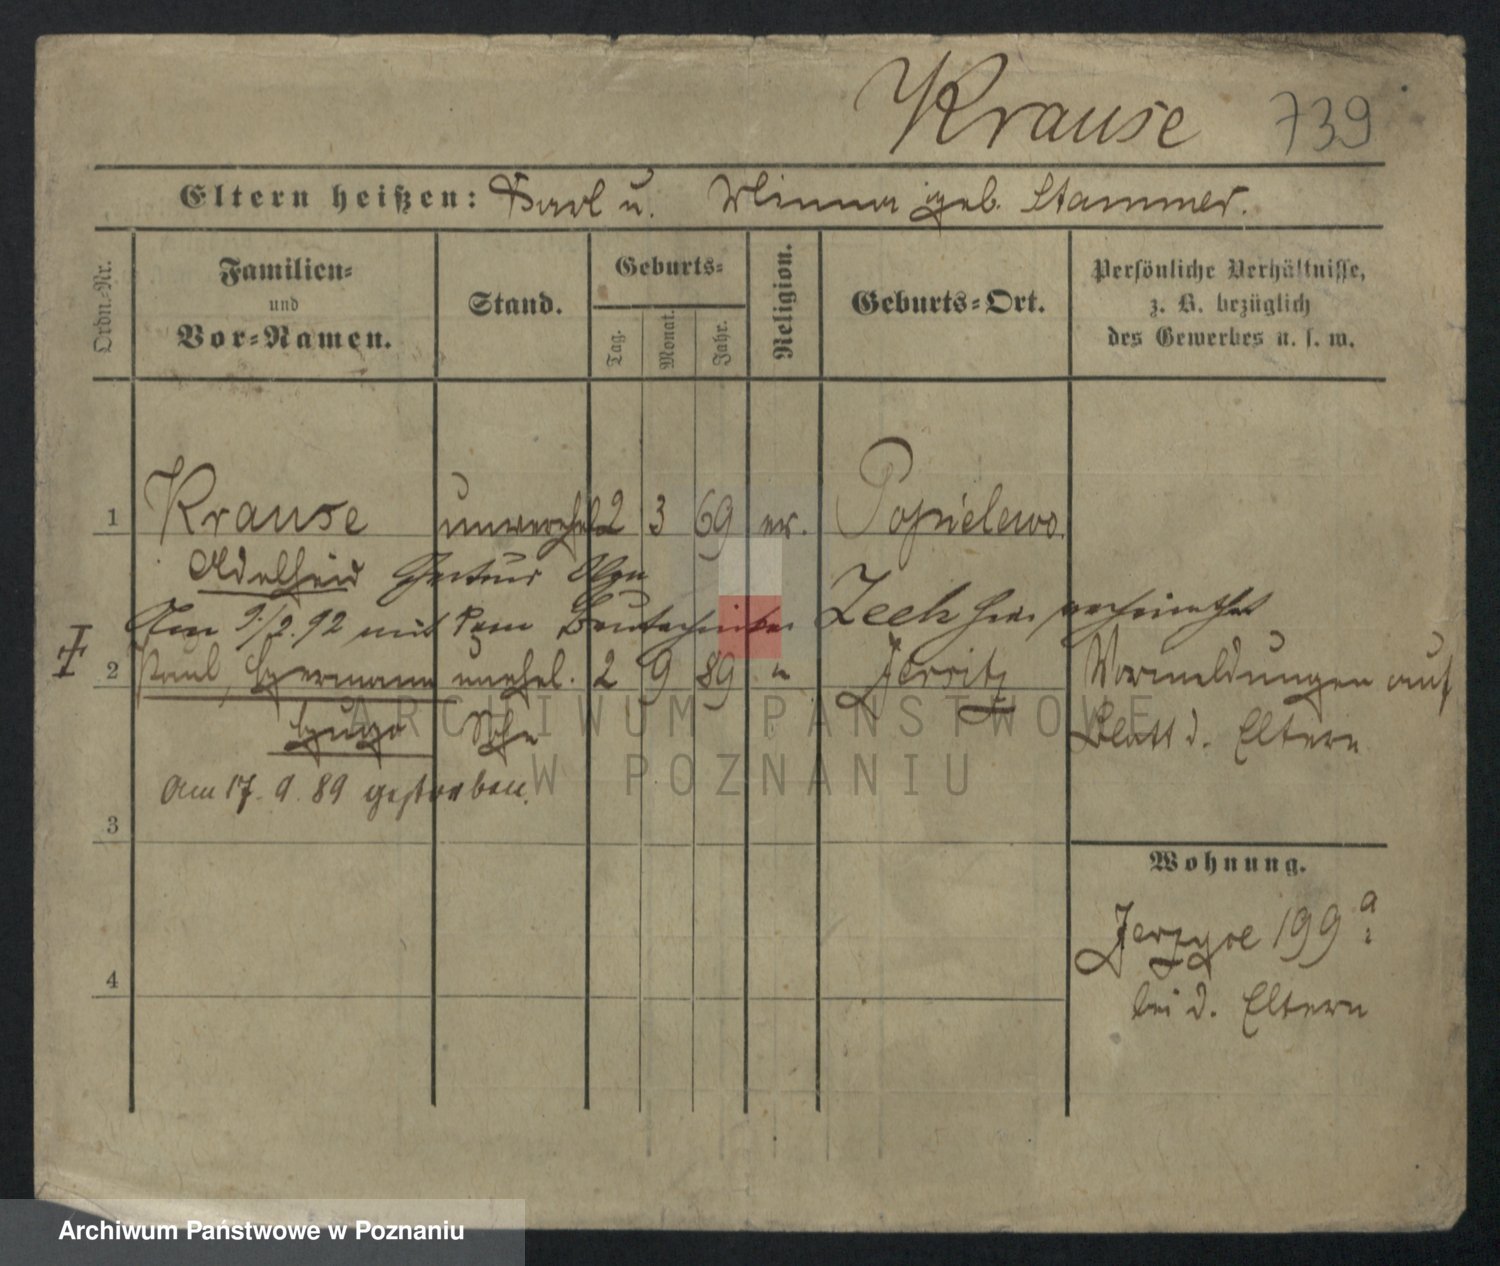 Krause 739
Eltern heißen: Karl u. Minna geb. Stammer.
Ordn.-Nr.
Familien- und Vor-Namen.
Stand.
Geburts-
Tag.
Monat.
Jahr.
Religion.
Geburts-Ort.
Persönliche Verhältnisse,
z. B. bezüglich
des Gewerbes u. s. w.
1 Krause unverehel. 2 3 69 ev. Popielewo.
Adelheid Olga
Am 9./2. 92 mit dem Zech hier verheirathet
2 Paul, Hermann unehel. 2 9 89 " Jersitz Vormeldungen auf
Hugo Sohn Blatt d. Eltern
am 17. 9. 89 gestorben.
3
Wohnung.
Jerzyce 199 a
4
bei d. Eltern
ARCHIWUM PAŃSTWOWE
W POZNANIU
Archiwum Państwowe w Poznaniu